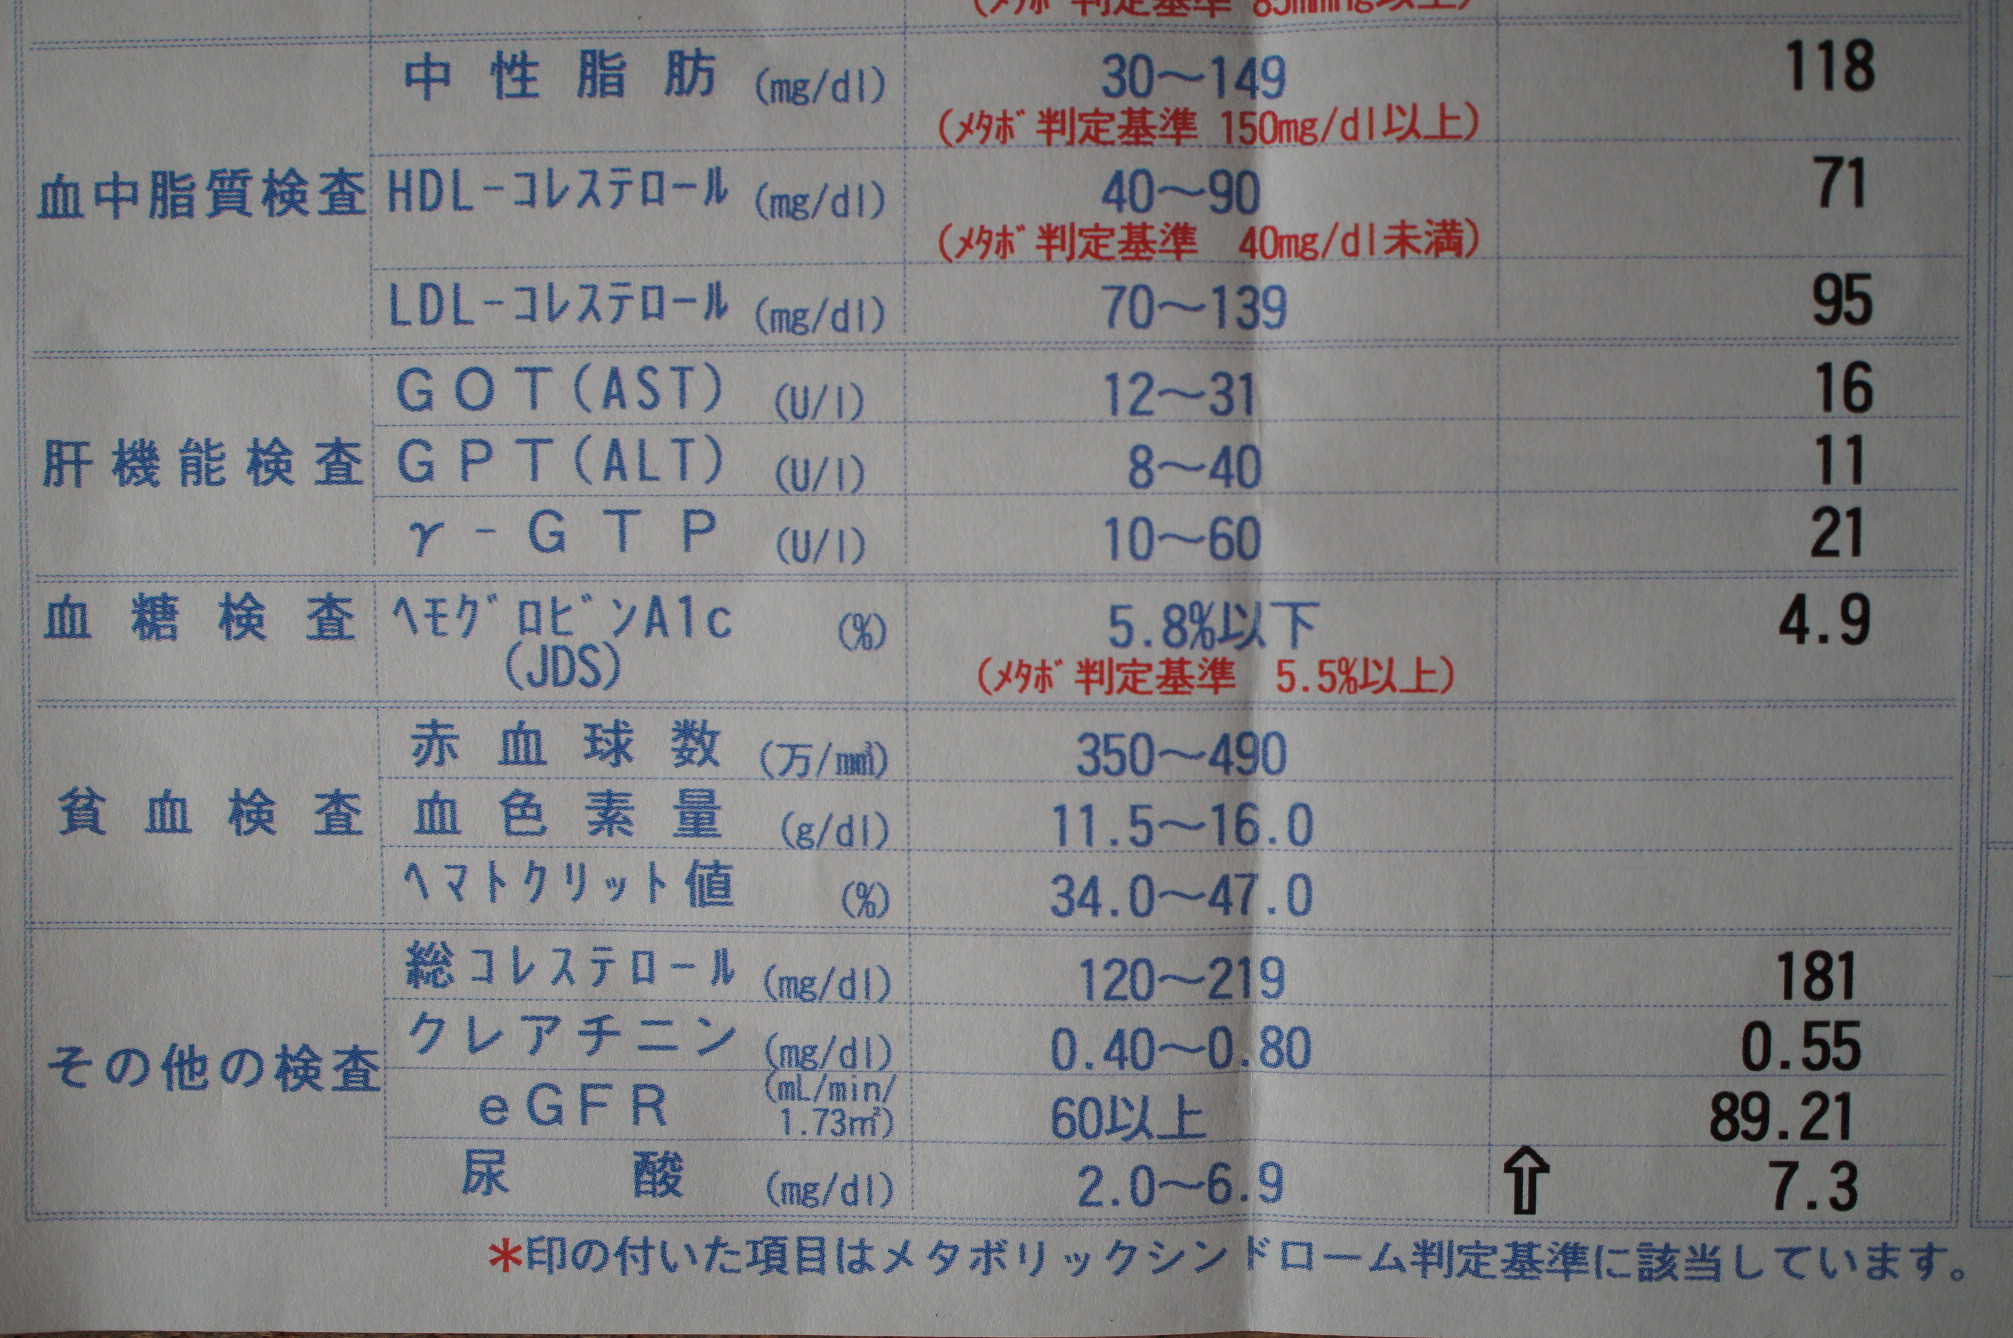 (ﾒﾀﾎﾞ判定基準 85mmHg以上)
中性脂肪 (mg/dl) 30～149 118
(ﾒﾀﾎﾞ判定基準 150mg/dl以上)
血中脂質検査 HDL-ｺﾚｽﾃﾛｰﾙ (mg/dl) 40～90 71
(ﾒﾀﾎﾞ判定基準 40mg/dl未満)
LDL-ｺﾚｽﾃﾛｰﾙ (mg/dl) 70～139 95
GOT(AST) (U/l) 12～31 16
肝機能検査 GPT(ALT) (U/l) 8～40 11
γ-GTP (U/l) 10～60 21
血糖検査 ﾍﾓｸﾞﾛﾋﾞﾝA1c (%) 5.8%以下 4.9
(JDS) (ﾒﾀﾎﾞ判定基準 5.5%以上)
赤血球数 (万/m㎥) 350～490
貧血検査 血色素量 (g/dl) 11.5～16.0
ﾍﾏﾄｸﾘｯﾄ値 (%) 34.0～47.0
総ｺﾚｽﾃﾛｰﾙ (mg/dl) 120～219 181
クレアチニン (mg/dl) 0.40～0.80 0.55
その他の検査 eGFR (mL/min/1.73㎡) 60以上 89.21
尿酸 (mg/dl) 2.0～6.9 ⇧ 7.3
*印の付いた項目はメタボリックシンドローム判定基準に該当しています。